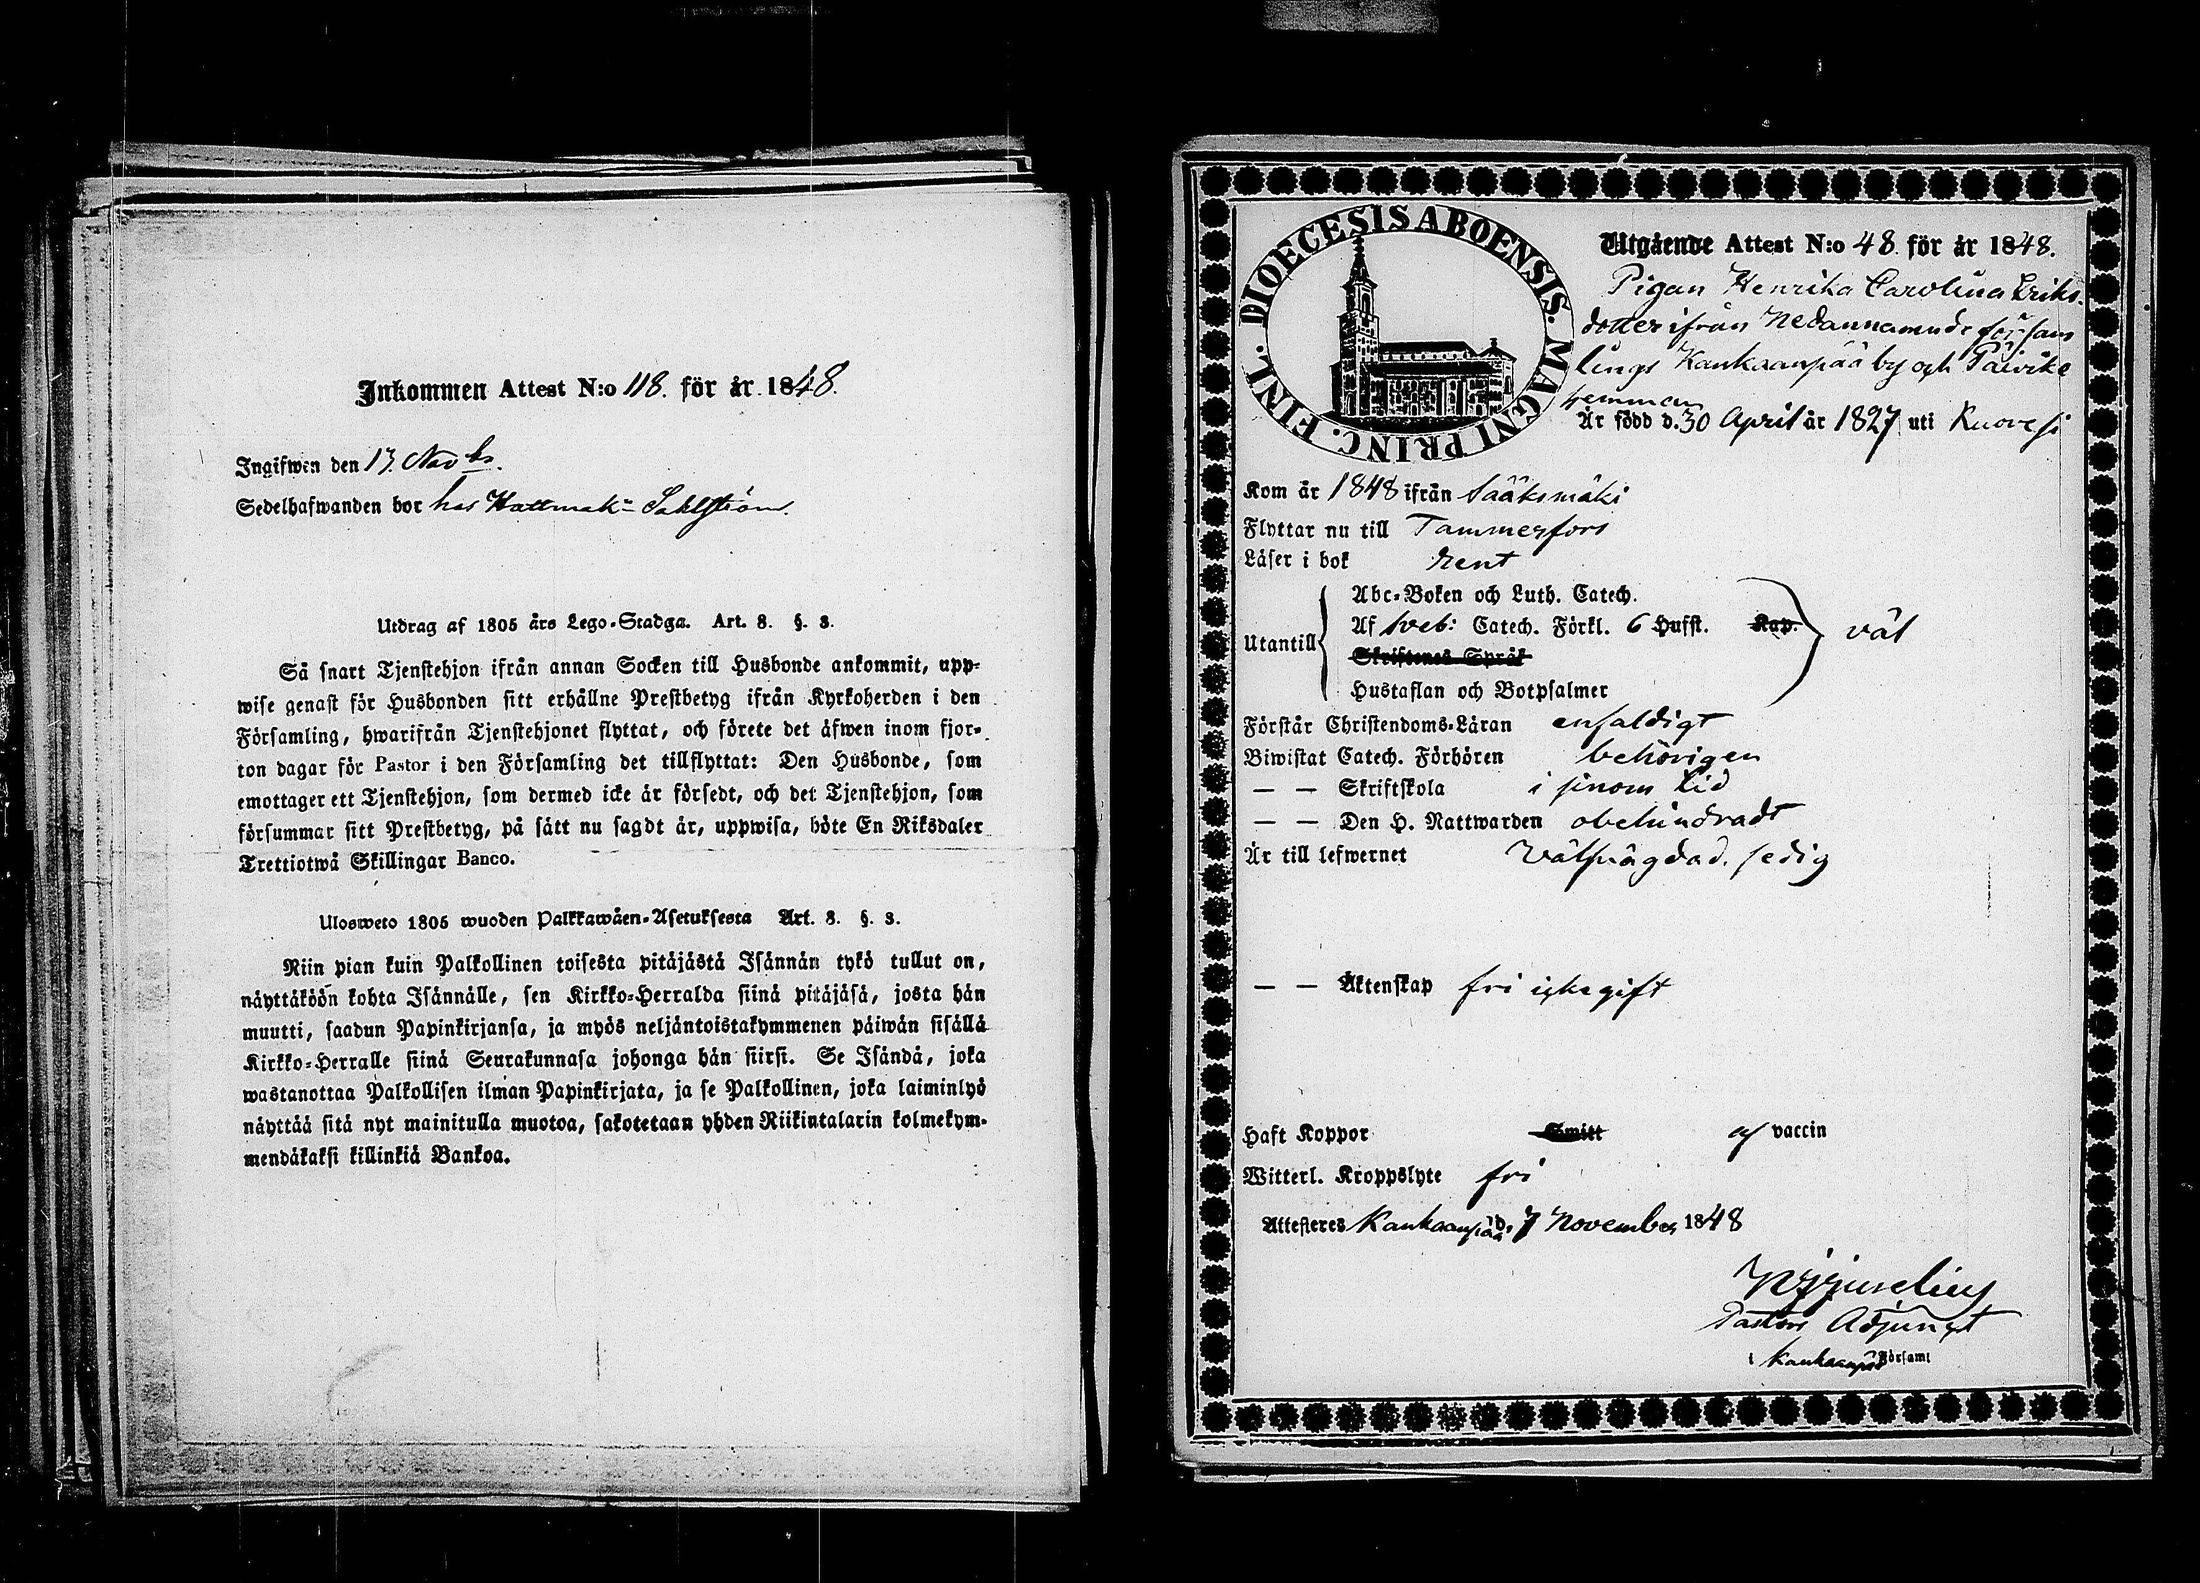 Inkommen Attest N:o 118. för år 1848.
Ingifwen den 13. Novbr.
Sedelhafwanden bor hos Hattmak- Sahlström.
Utdrag af 1805 års Lego-Stadga. Art. 8. §. 3.
Så snart Tjenstehjon ifrån annan Socken till Husbonde ankommit, upp-
wise genast för Husbonden sitt erhållne Prestbetyg ifrån Kyrkoherden i den
Församling, hwarifrån Tjenstehjonet flyttat, och förete det äfwen inom fjor-
ton dagar för Pastor i den Församling det tillflyttat: Den Husbonde, som
emottager ett Tjenstehjon, som dermed icke är försedt, och det Tjenstehjon, som
försummar sitt Prestbetyg, på sätt nu sagdt är, uppwisa, böte En Riksdaler
Trettiotwå Skillingar Banco.
Ulosweto 1805 wuoden Palkkawäen-Asetuksesta Art. 8. §. 3.
Niin pian kuin Palkollinen toisesta pitäjästä Isännän tykö tullut on,
näyttäköön kohta Isännälle, sen Kirkko-Herralda siinä pitäjäsä, josta hän
muutti, saadun Papinkirjansa, ja myös neljäntoistakymmenen päiwän sisällä
Kirkko-Herralle siinä Seurakunnasa johonga hän siirsi. Se Isändä, joka
wastanottaa Palkollisen ilman Papinkirjata, ja se Palkollinen, joka laiminlyö
näyttää sitä nyt mainitulla muotoa, sakotetaan yhden Riikintalarin kolmekym-
mendäkaksi killinkiä Bankoa.
DIOECESIS ABOENSIS. MAGNI PRINC. FINL.
Utgående Attest N:o 48 för år 1848.
Pigan Henrika Carolina Eriks-
dotter ifrån Nedannamnde församl
lings Kankaanpää by och Päivike
hemman
Är född d. 30 April år 1827 uti Ruovesi
Kom år 1848 ifrån Sääksmäki
Flyttar nu till Tammerfors
Läser i bok rent
Abc-Boken och Luth. Catech.
Utantill Af sveb: Catech. Förkl. 6 Hufst. Kap. väl
Skriftenes Språk
Hustaflan och Botpsalmer
Förstår Christendoms-Läran enfaldigt
Biwistat Catech. Förhören behörigen
— — Skriftskola i sinom tid
— — Den H. Nattwarden obehindradt
Är till lefwernet välfrägdad, sedig
— — Äktenskap fri icke gift
Haft Koppor Smitt af vaccin
Witterl. Kroppslyte fri
Attesteres Kankaanpää d. 7 November 1848
Pastors Adjunct
i Kankaanpää Församl